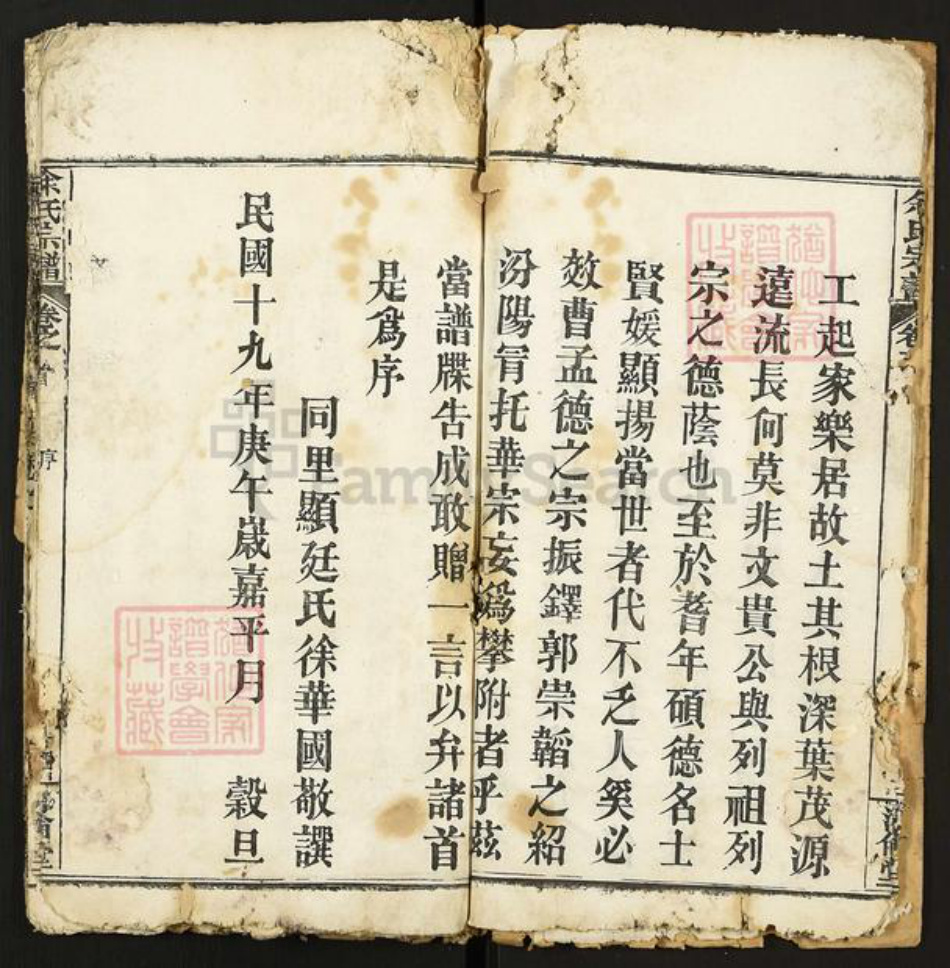 工起家樂居故土其根深葉茂源
遠流長何莫非文貴公與列祖列
宗之德蔭也至於耆年碩德名士
賢媛顯揚當世者代不乏人奚必
效曹孟德之宗振鐸郭崇韜之紹
汾陽肯托華宗妄爲攀附者乎茲
當譜牒告成敢贈一言以弁諸首
是爲序
同里顯廷氏徐華國敬譔
民國十九年庚午嵗嘉平月 穀旦
余氏宗譜 卷之首 序
FamilySearch